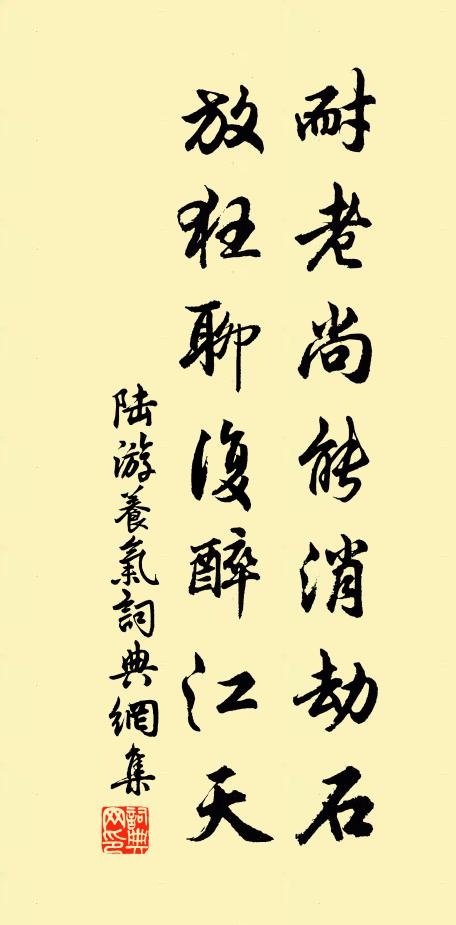 耐老尚能消劫石
放狂聊復醉江天
陆游養氣詞典網集
詞典
网印